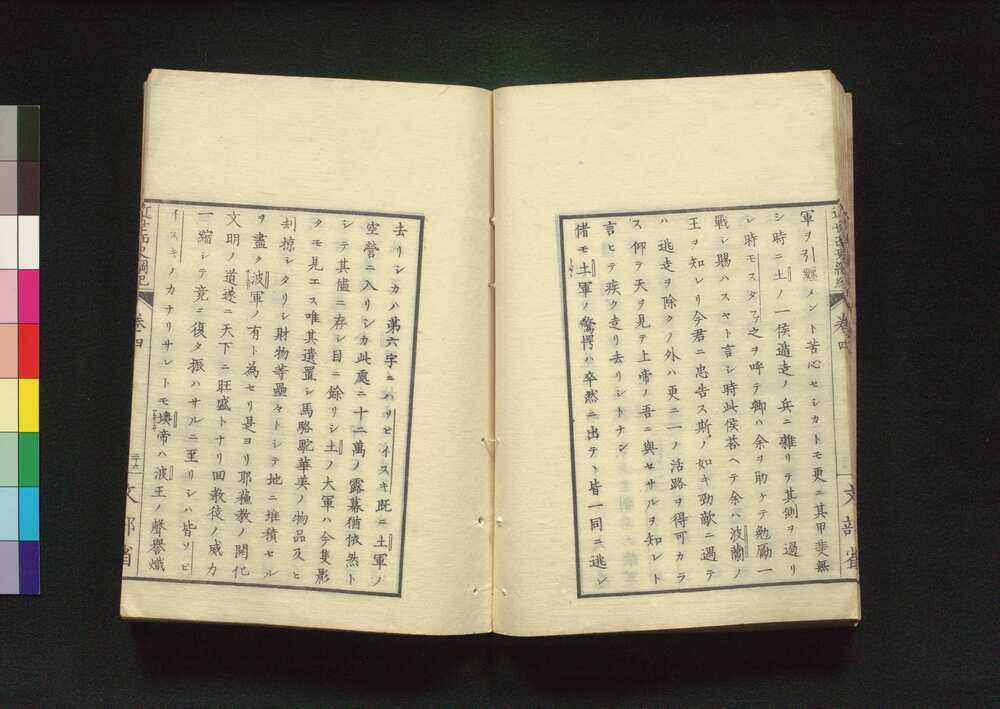 軍ヲ引纒メント苦心セシカトモ更ニ其甲斐無
シ時ニ土ノ一侯遁走ノ兵ニ雜リテ其側ヲ過リ
シ時モスタフア之ヲ呼テ卿ハ余ヲ助ケテ勉勵一
戰シ賜ハスヤト言シ時此侯荅ヘテ余ハ波蘭ノ
王ヲ知レリ今君ニ忠告ス斯ノ如キ勁敵ニ遇テ
ハ逃走ヲ除クノ外ハ更ニ一ノ活路ヲ得可カラ
ス仰テ天ヲ見テ上帝ノ吾ニ與セサルヲ知レト
言ヒテ疾ク走リ去リシトナン
偖モ土軍ノ驚愕ハ卒然ニ出テヽ皆一同ニ逃レ
去リシカハ第六字ニハソビイスキ既ニ土軍ノ
空營ニ入リシカ此處ニ十二萬ノ露幕猶依然ト
シテ其儘ニ存シ目ニ餘リシ土ノ大軍ハ今隻影
タモ見エス唯其遺置シ馬駱駝華美ノ物品及ヒ
刦掠シタリシ財物等壘々トシテ地ニ堆積セル
ヲ盡ク波軍ノ有ト為セリ是ヨリ耶蘓教ノ開化
文明ノ道遂ニ天下ニ旺盛トナリ回教徒ノ威力
一縮シテ竟ニ復タ振ハサルニ至リシハ皆ソビ
イスキノカナリサレトモ墺帝ハ波王ノ聲譽熾
近世西史綱紀 卷四 文部省